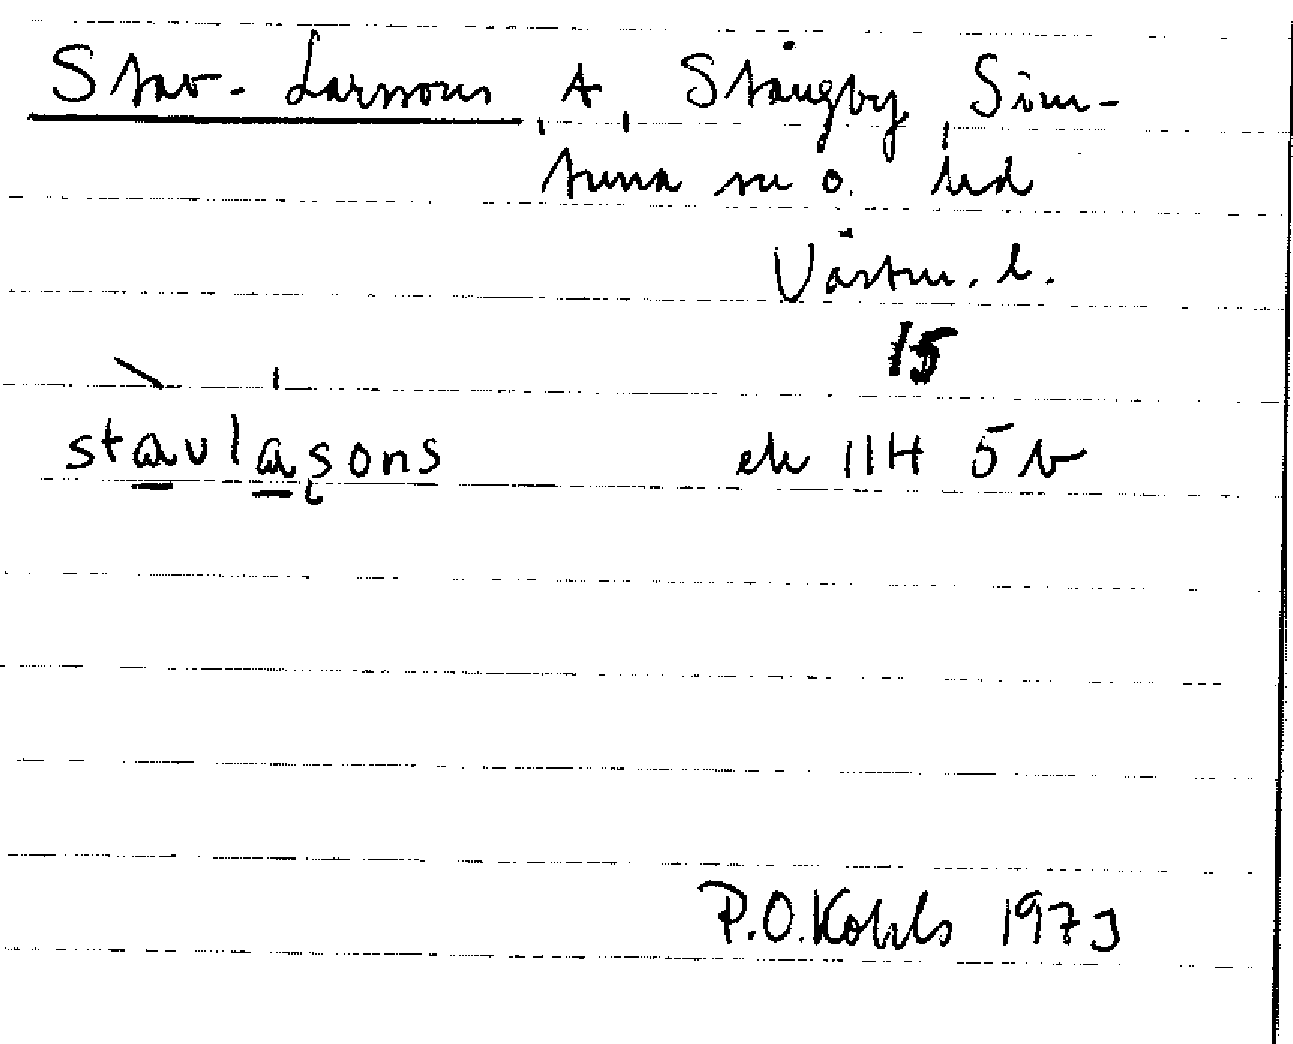 Stav-Larssons, t, Stångby, Sim-
tuna sn o. hd
Västm. l.
15
stavlaʂons ek 11H 5b
P.O.Kohls 1973